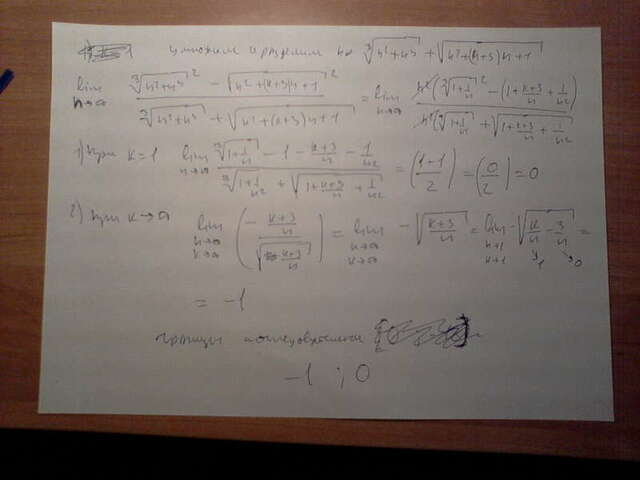 умножим и разделим на ∛(n²+n³) + √(n²+(k+3)n+1)
lim n→∞ (∛(n²+n³)² − √(n²+(k+3)n+1)²) / (∛(n²+n³) + √(n²+(k+3)n+1)) = lim n→∞ (n²(∛(1+1/n)² − (1+(k+3)/n+1/n²))) / (∛(1+1/n) + √(1+(k+3)/n+1/n²))
1) при k=1 lim n→∞ (∛(1+1/n) − 1 − (k+3)/n − 1/n²) / (∛(1+1/n) + √(1+(k+3)/n+1/n²)) = ((1−1)/2) = (0/2) = 0
2) при k→∞ lim n→∞ k→∞ (−((k+3)/n) / √((k+3)/n)) = lim n→∞ k→∞ −√((k+3)/n) = lim −√(k/n − 3/n) =
= −1
границы
−1 ; 0